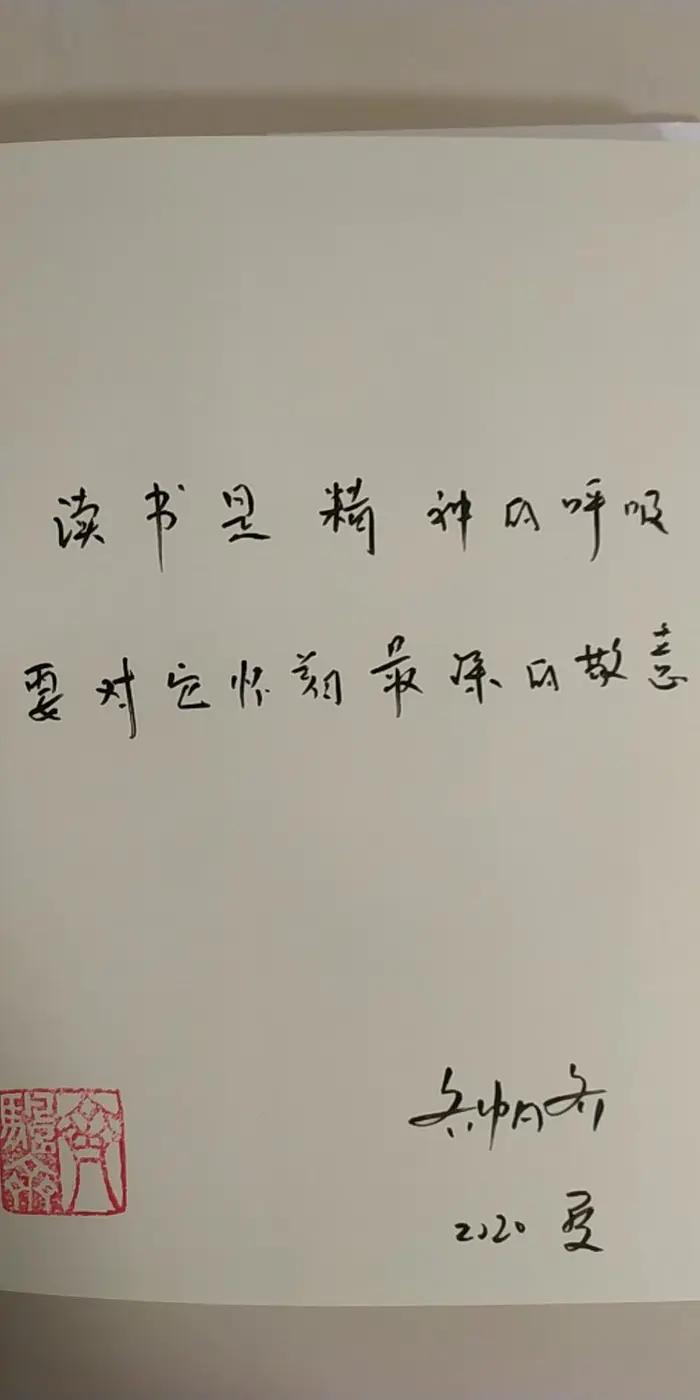 读书是精神的呼吸
要对它怀着最深的敬意
2020 夏